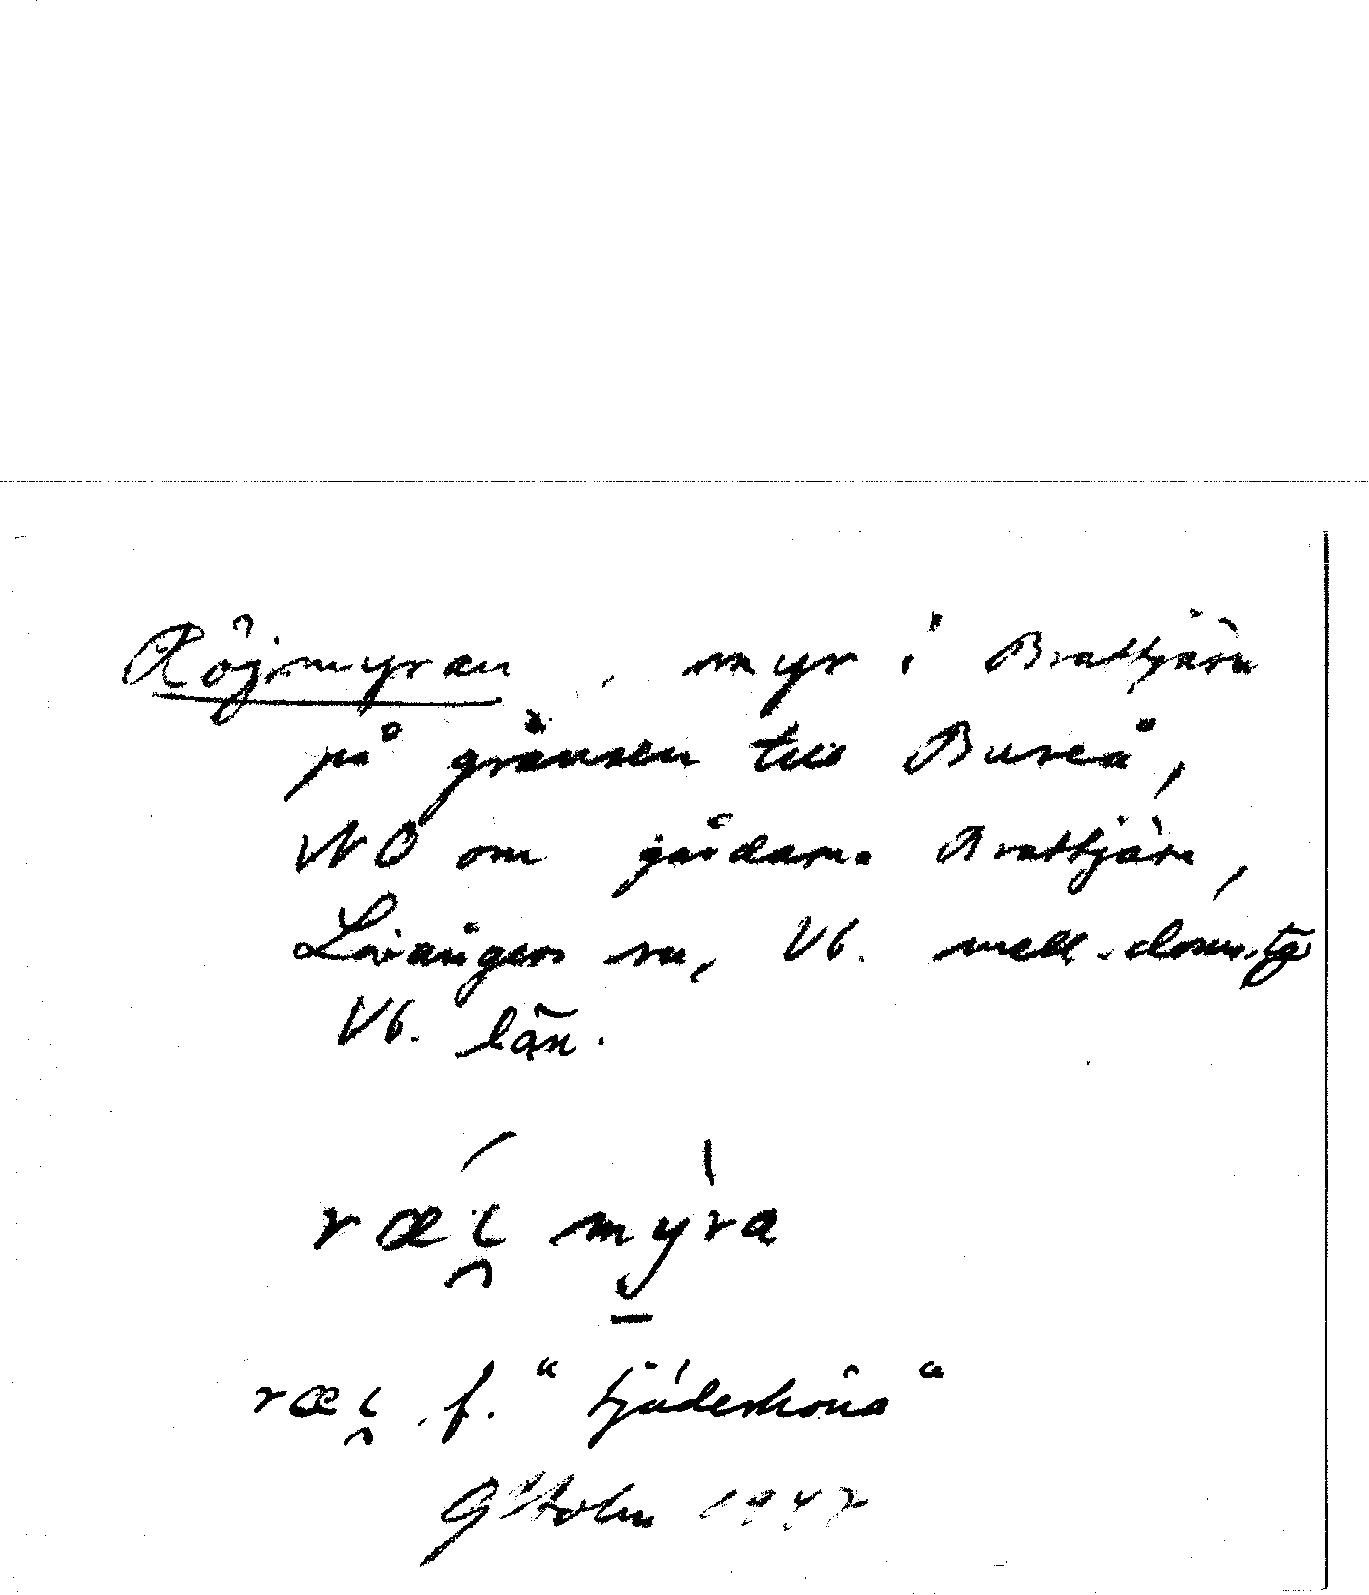 Röjmyran, myr i Brattjärn
på gränsen till Bureå,
NO om gårdarna Brattjärn,
Lövångers sn, Vb. mell. doms.
Vb. län.
ræi̯ myra
ræi̯, f. "tjäderhöna"
G Holm 1947